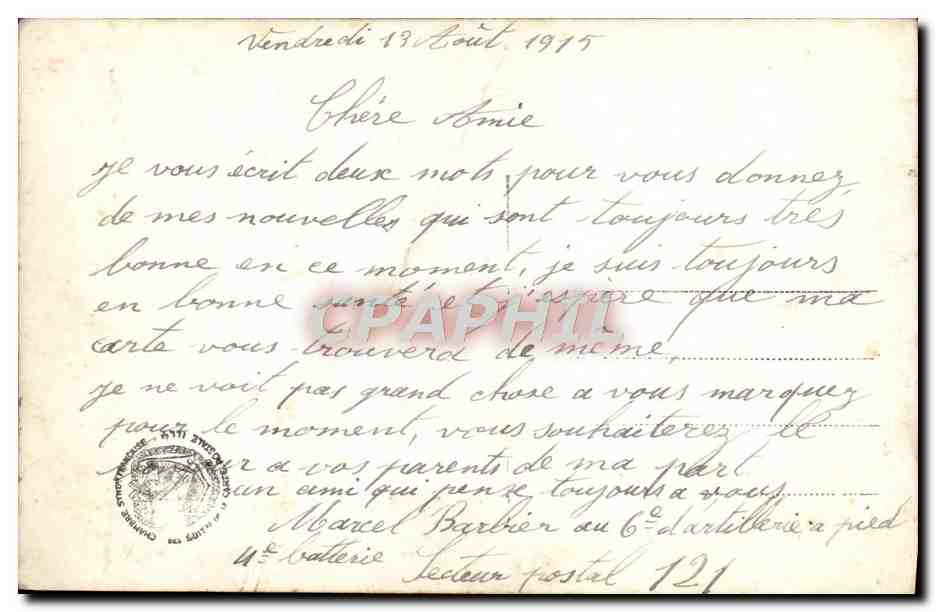 Vendredi 13 Août 1915
Chére Amie
Je vous écrit deux mots pour vous donnez
de mes nouvelles qui sont toujours trés
bonne en ce moment, je suis toujours
en bonne santé et j'espère que ma
carte vous trouvera de même,
CPAPHIL
Je ne voit pas grand chose a vous marquez
pour le moment, vous souhaiterez le
a vos parents de ma part
un ami qui pense toujours a vous
Marcel Barbier au 6e d'artillerie a pied
4e batterie Secteur postal 121
CHAMBRE SYND FRANÇAISE